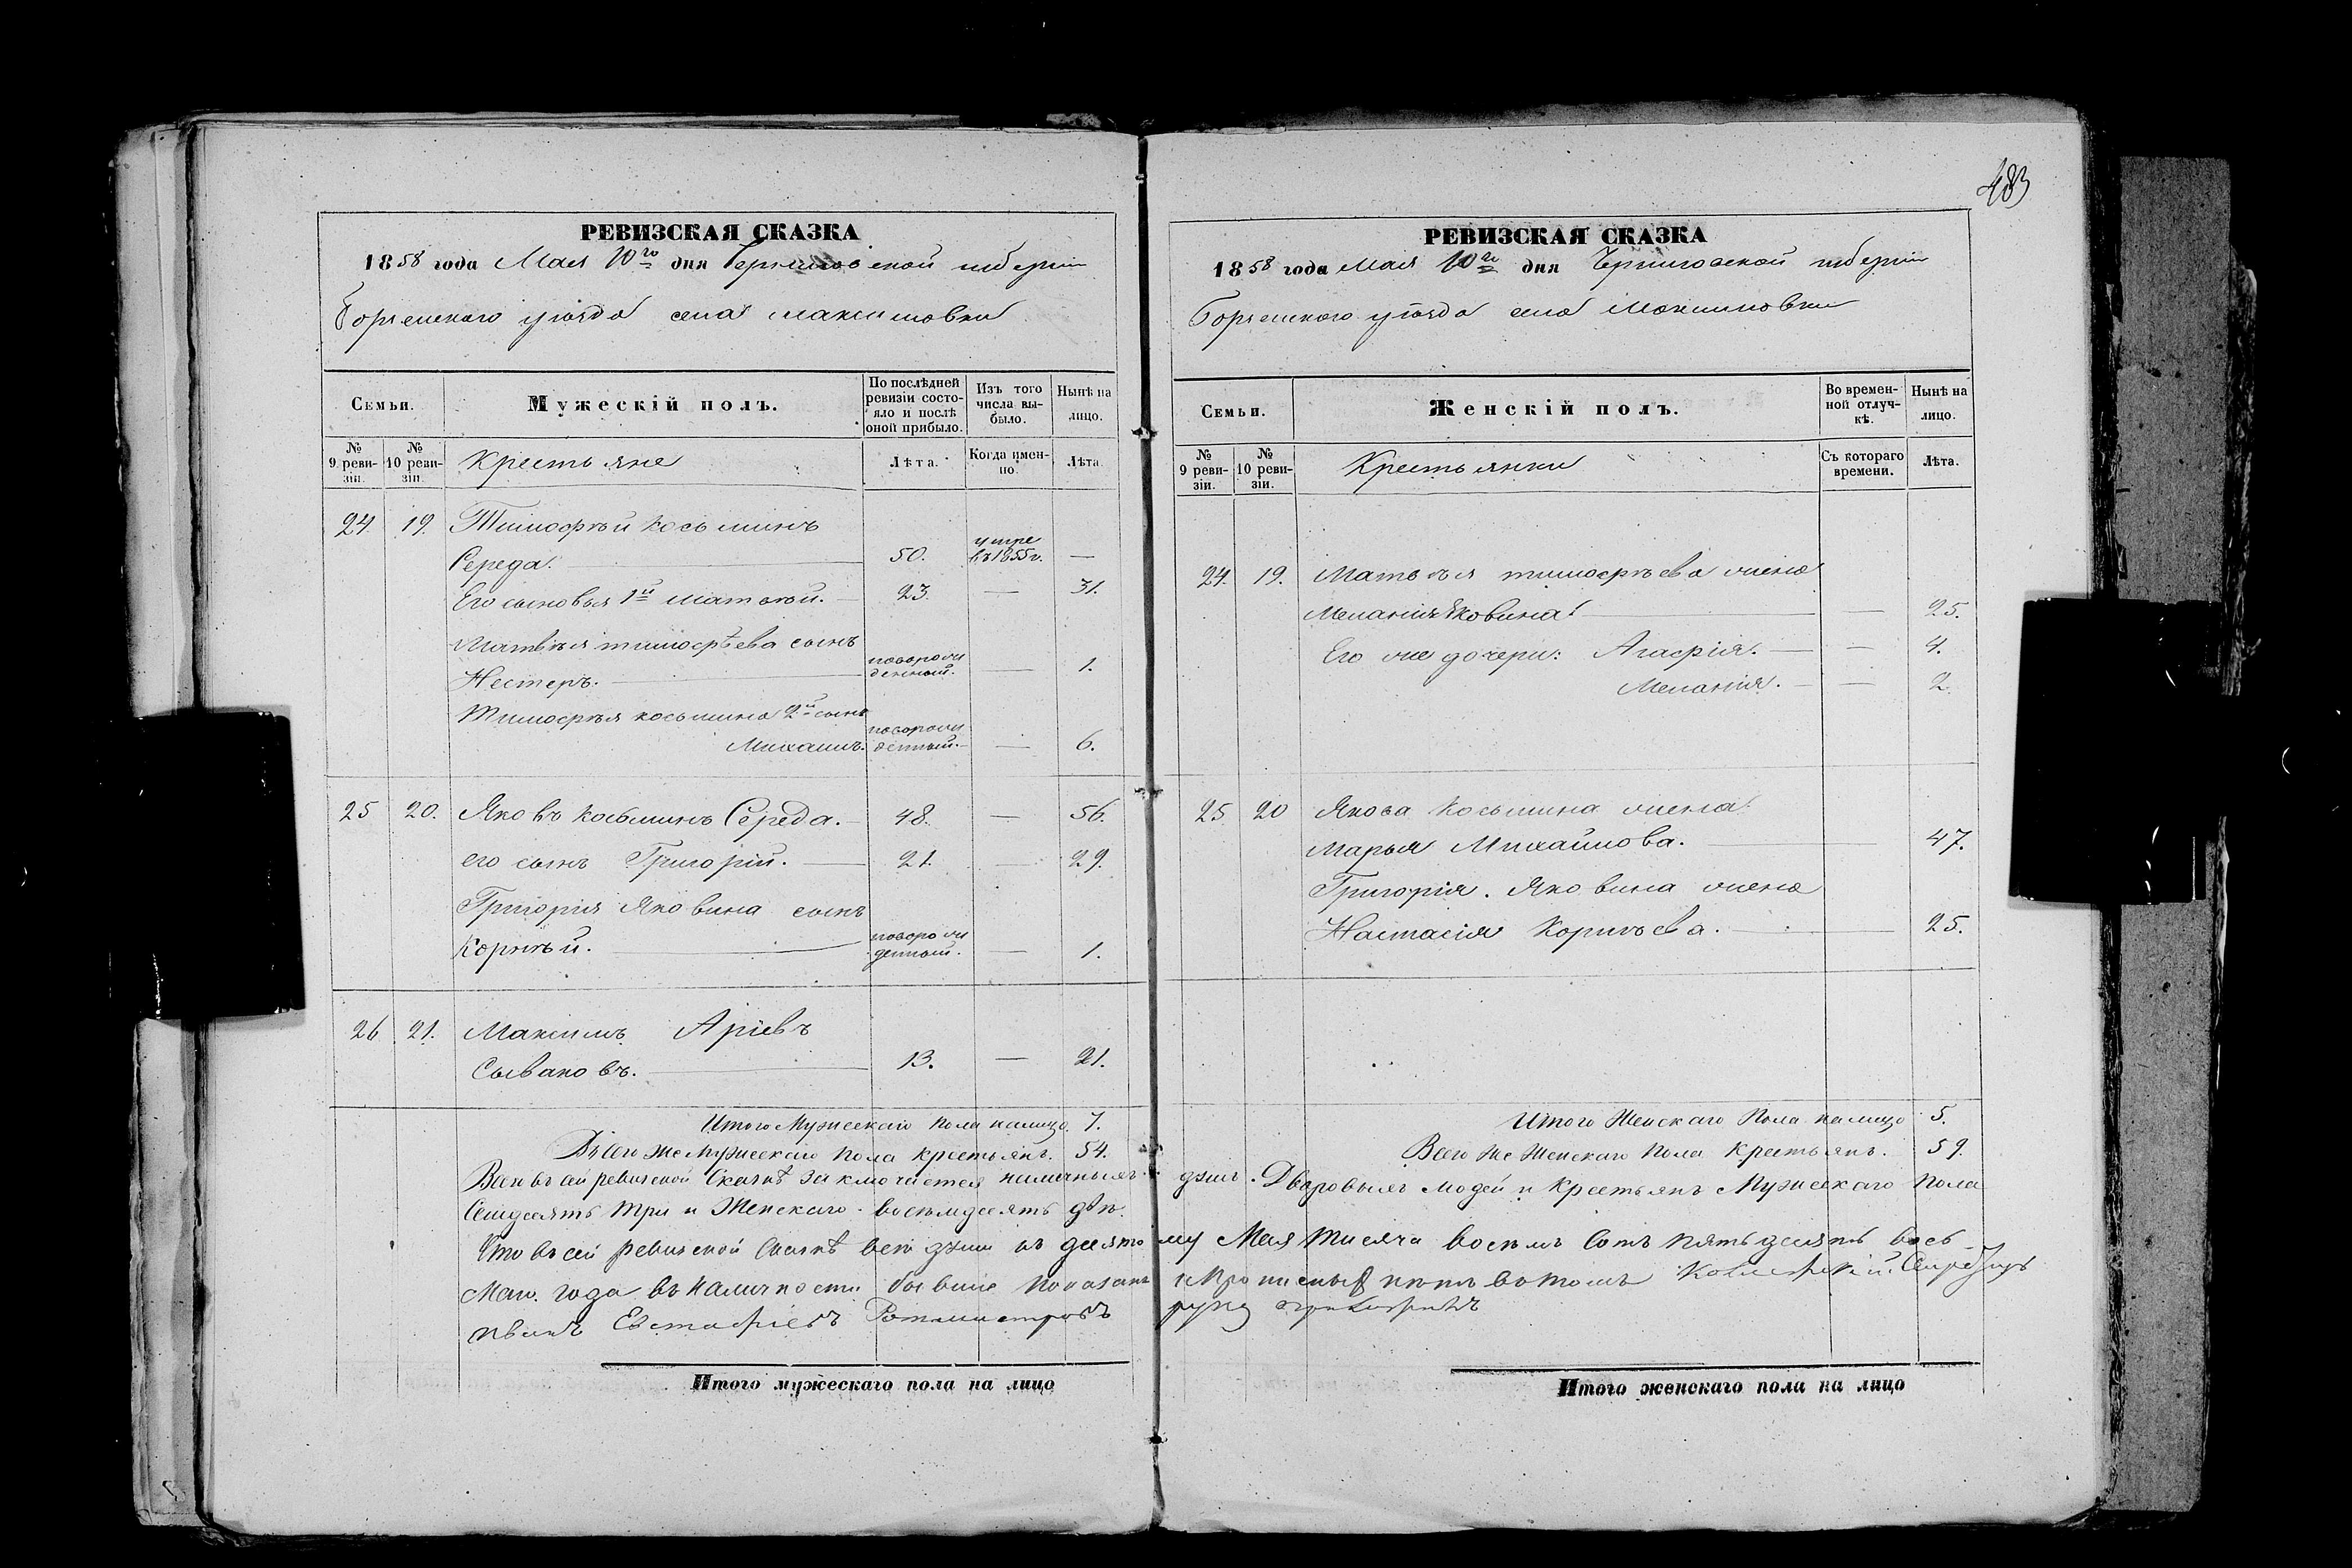 483
РЕВИЗСКАЯ СКАЗКА
1858 года Мая 10го дня Черниговской губернии
Борзенского уѣзда села Максимовки
Семьи. Мужескій полъ. По послѣдней ревизіи состояло и послѣ оной прибыло. Изъ того числа выбыло. Нынѣ на лицо.
№ 9 ревизіи. № 10 ревизіи. Крестьяне Лѣта. Когда именно. Лѣта.
24 19. Тимофѣй Косьминъ
Середа. 50. умре въ 1855 г. —
Его сыновья 1й Матвѣй. 23. — 31.
Матвѣя Тимофѣева сынъ
Нестеръ. новорожденный. — 1.
Тимофѣя Косьмина 2й сынъ
Михаилъ. новорожденный. — 6.
25 20. Яковъ Косьминъ Середа. 48. — 56.
его сынъ Григорій. 21. — 29.
Григорія Яковина сынъ
Корнѣй. новорожденный. — 1.
26 21. Максимъ Аріевъ
Сывановъ. 13. — 21.
Итого Мужескаго пола налицо 7.
Всего же Мужескаго пола крестьянъ. 54.
РЕВИЗСКАЯ СКАЗКА
1858 года Мая 10го дня Черниговской губернии
Борзенского уѣзда села Максимовки
Семьи. Женскій полъ. Во временной отлучкѣ. Нынѣ на лицо.
№ 9 ревизіи. № 10 ревизіи. Крестьянки Съ котораго времени. Лѣта.
24. 19. Матвѣя Тимофѣева жена
Меланія Яковина — 25.
Его же дочери: Агафія. — 4.
Меланія. — 2.
25 20 Якова Косьмина жена
Марья Михайлова. 47.
Григорія. Яковина жена
Настасія Корнѣева. 25.
Итого Женскаго Пола налицо 5.
Всего же Женскаго пола Крестьянъ. 59.
Всѣхъ въ сей ревизской Сказкѣ заключается наличныхъ душъ. Дворовыхъ людей и Крестьянъ Мужескаго пола
Семдесятъ три и Женскаго восемдесятъ двѣ.
Что въ сей ревизской Сказкѣ всѣ души къ десятому Мая тысяча восемь сотъ пятьдесятъ вось-
маго года въ наличности бывшіе показаны и прописныхъ нѣтъ въ томъ
Евстафіевъ Ротмистровъ руку приложилъ
Итого мужескаго пола на лицо
Итого женскаго пола на лицо